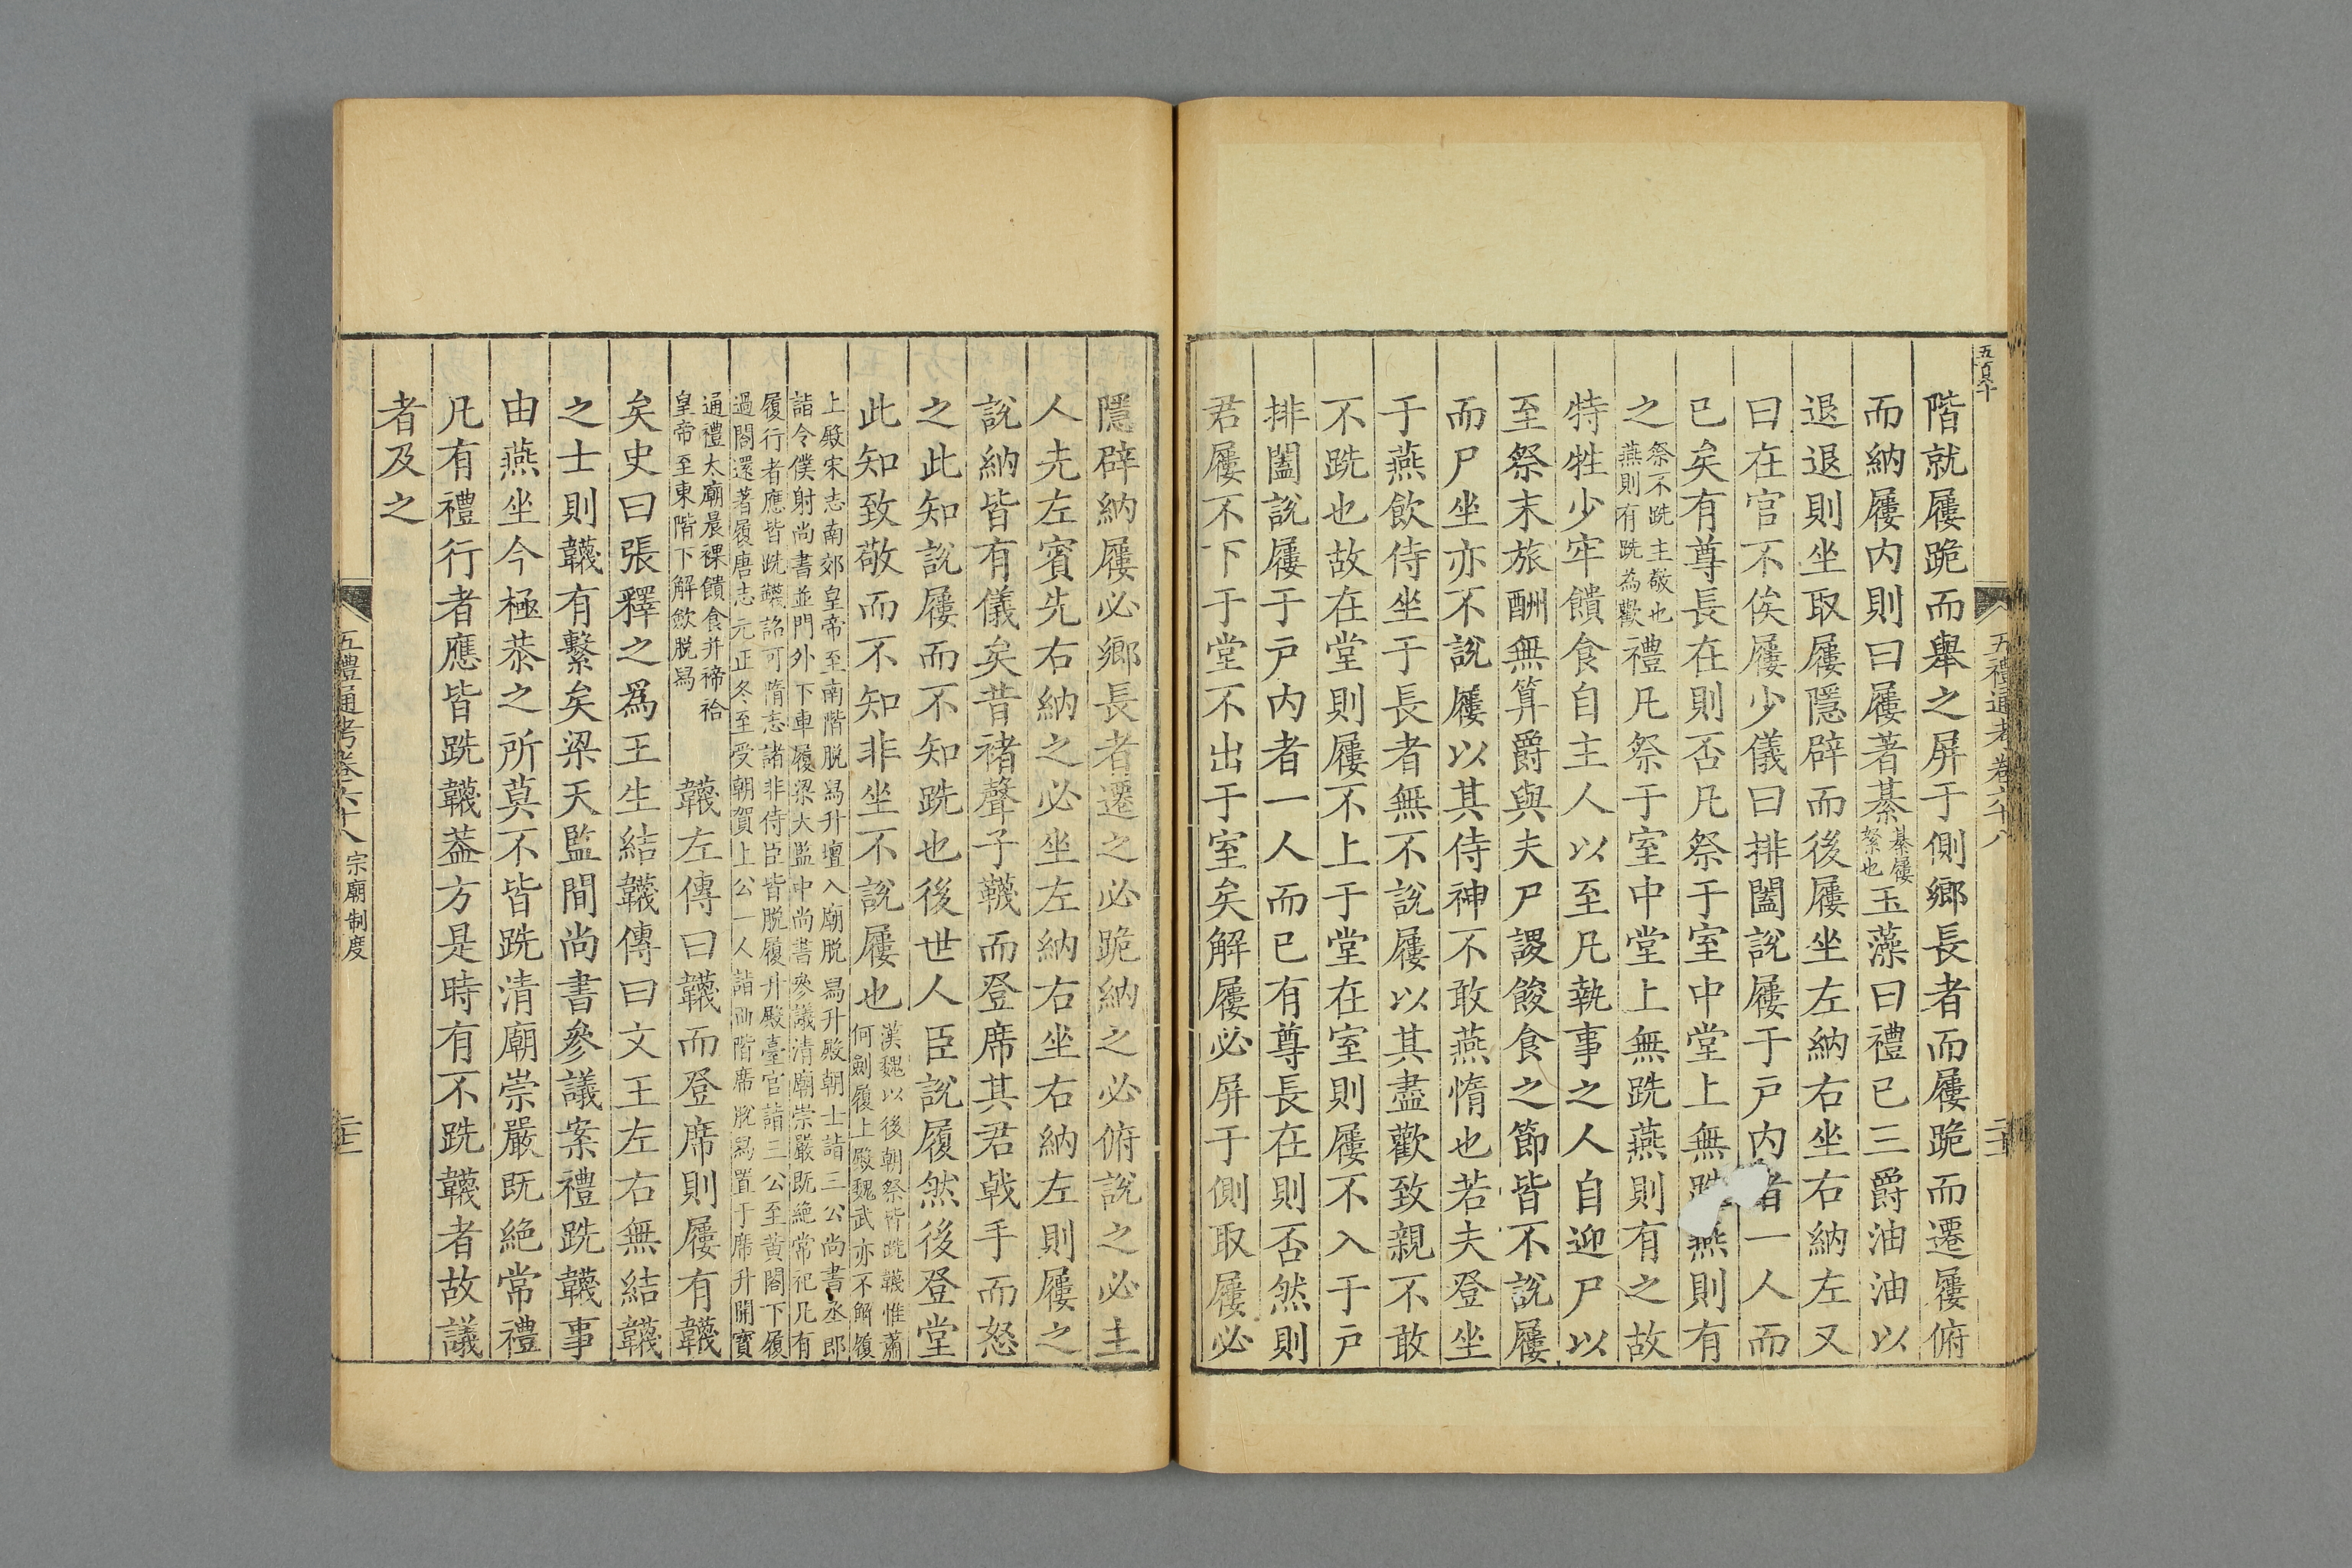 五禮通考卷六十八
階就屨跪而舉之屏于側鄉長者而屨跪而遷屨俯
而納屨内則曰屨著綦綦屨繫也玉藻曰禮已三爵油油以
退退則坐取屨隱辟而後屨坐左納右坐右納左又
曰在官不俟屨少儀曰排闔說屨于戸内者一人而
已矣有尊長在則否凡祭于室中堂上無跣燕則有
之祭不跣主敬也燕則有跣為歡禮凡祭于室中堂上無跣燕則有之故
特牲少牢饋食自主人以至凡執事之人自迎尸以
至祭末旅酬無算爵與夫尸謖餕食之節皆不說屨
而尸坐亦不說屨以其侍神不敢燕惰也若夫登坐
于燕飲侍坐于長者無不說屨以其盡歡致親不敢
不跣也故在堂則屨不上于堂在室則屨不入于戸
排闔說屨于戸内者一人而已有尊長在則否然則
君屨不下于堂不出于室矣解屨必屏于側取屨必
隱辟納屨必鄉長者遷之必跪納之必俯說之必主
人先左賓先右納之必坐左納右坐右納左則屨之
說納皆有儀矣昔褚聲子韈而登席其君戟手而怒
之此知說屨而不知跣也後世人臣說履然後登堂
此知致敬而不知非坐不說屨也漢魏以後朝祭皆跣韈惟蕭
何劍履上殿魏武亦不解履
上殿宋志南郊皇帝至南階脱舄升壇入廟脱舄升殿朝士詣三公尚書丞郎
詣令僕射尚書並門外下車履梁大監中尚書參議清廟崇嚴既絶常祀凡有
履行者應皆跣韈詔可隋志諸非侍臣皆脱履升殿臺官詣三公至黄閤下履
過閤還著履唐志元正冬至受朝賀上公一人詣西階席脱舄置于席升開寳
通禮太廟晨祼饋食并禘祫
皇帝至東階下解歛脱舄韈左傳曰韈而登席則屨有韈
矣史曰張釋之爲王生結韈傳曰文王左右無結韈
之士則韈有繫矣梁天監間尚書參議案禮跣韈事
由燕坐今極恭之所莫不皆跣清廟崇嚴既絶常禮
凡有禮行者應皆跣韈葢方是時有不跣韈者故議
者及之
五禮通考卷六十八 宗廟制度